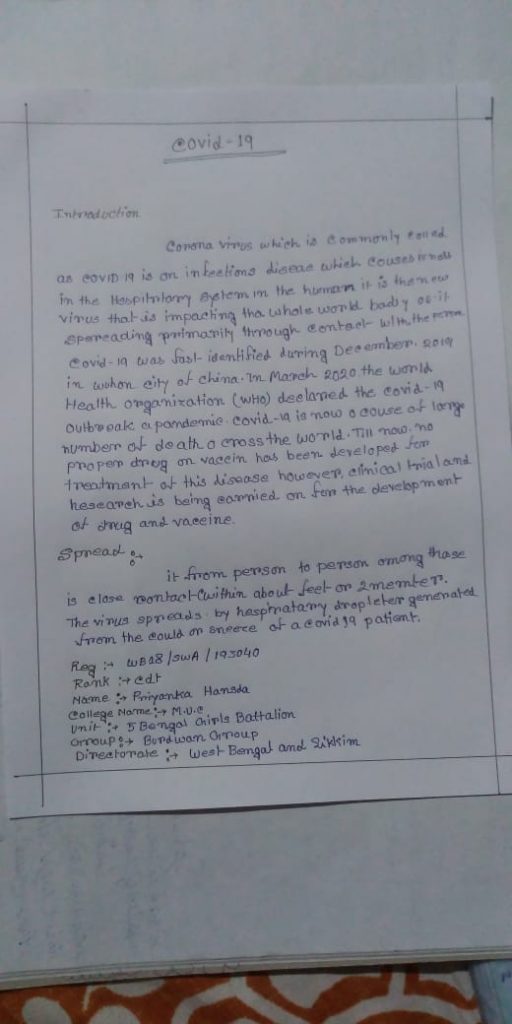 Covid-19
Introduction
Corona virus which is commonly called
as COVID 19 is an infections diseae which couses
in the Hespitritory system in the human it is the new
virus that is impacting tha whole world badly as it
spereading primarity through contact with the
Covid-19 was fast identified during December. 2019
in wuhan city of china. In March 2020 the world
Health organization (WHO) declared the covid-19
outbreak a pandemic. covid-19 is now a couse of large
number of death across the world. Till now. no
proper drug on vaccin has been developed for
treatment of this disease however, clinical trial and
research is being carried on for the development
of drug and vacceine.
Spread :→
it from person to person among thase
is close contact (within about feet or 2 memter.
The virus spreads. by hespiratary dropleter generated
from the could or sneece of a covid 19 patient.
Reg :→ WB18/SWA/193040
Rank :→ Cdt
Name :→ Priyanka Hansda
College Name :→ M.U.C
Unit :→ 5 Bengal Girls Battalion
Group :→ Burdwan Group
Directorate :→ West Bengal and Sikkim